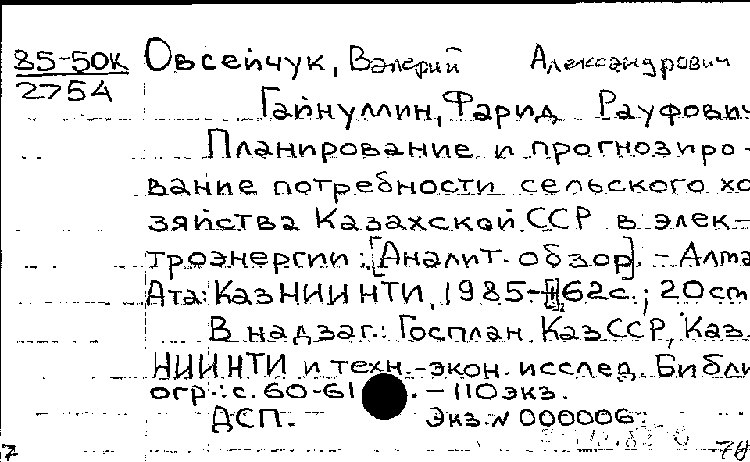 85-50К Овсейчук, Валерий Александрович
2754
Гайнуллин, Фарид Рауфови
Планирование и прогнозиро-
вание потребности сельского хо
зяйства Казахской ССР в элек-
троэнергии: [Аналит. обзор]. - Алма
Ата: КазНИИНТИ, 1985.- 62с.; 20см
В надзаг.: Госплан КазССР, Каз.
НИИНТИ и техн.-экон. исслед. Библи
огр.: с. 60-61 . - 110экз.
ДСП. Экз.№ 000006.